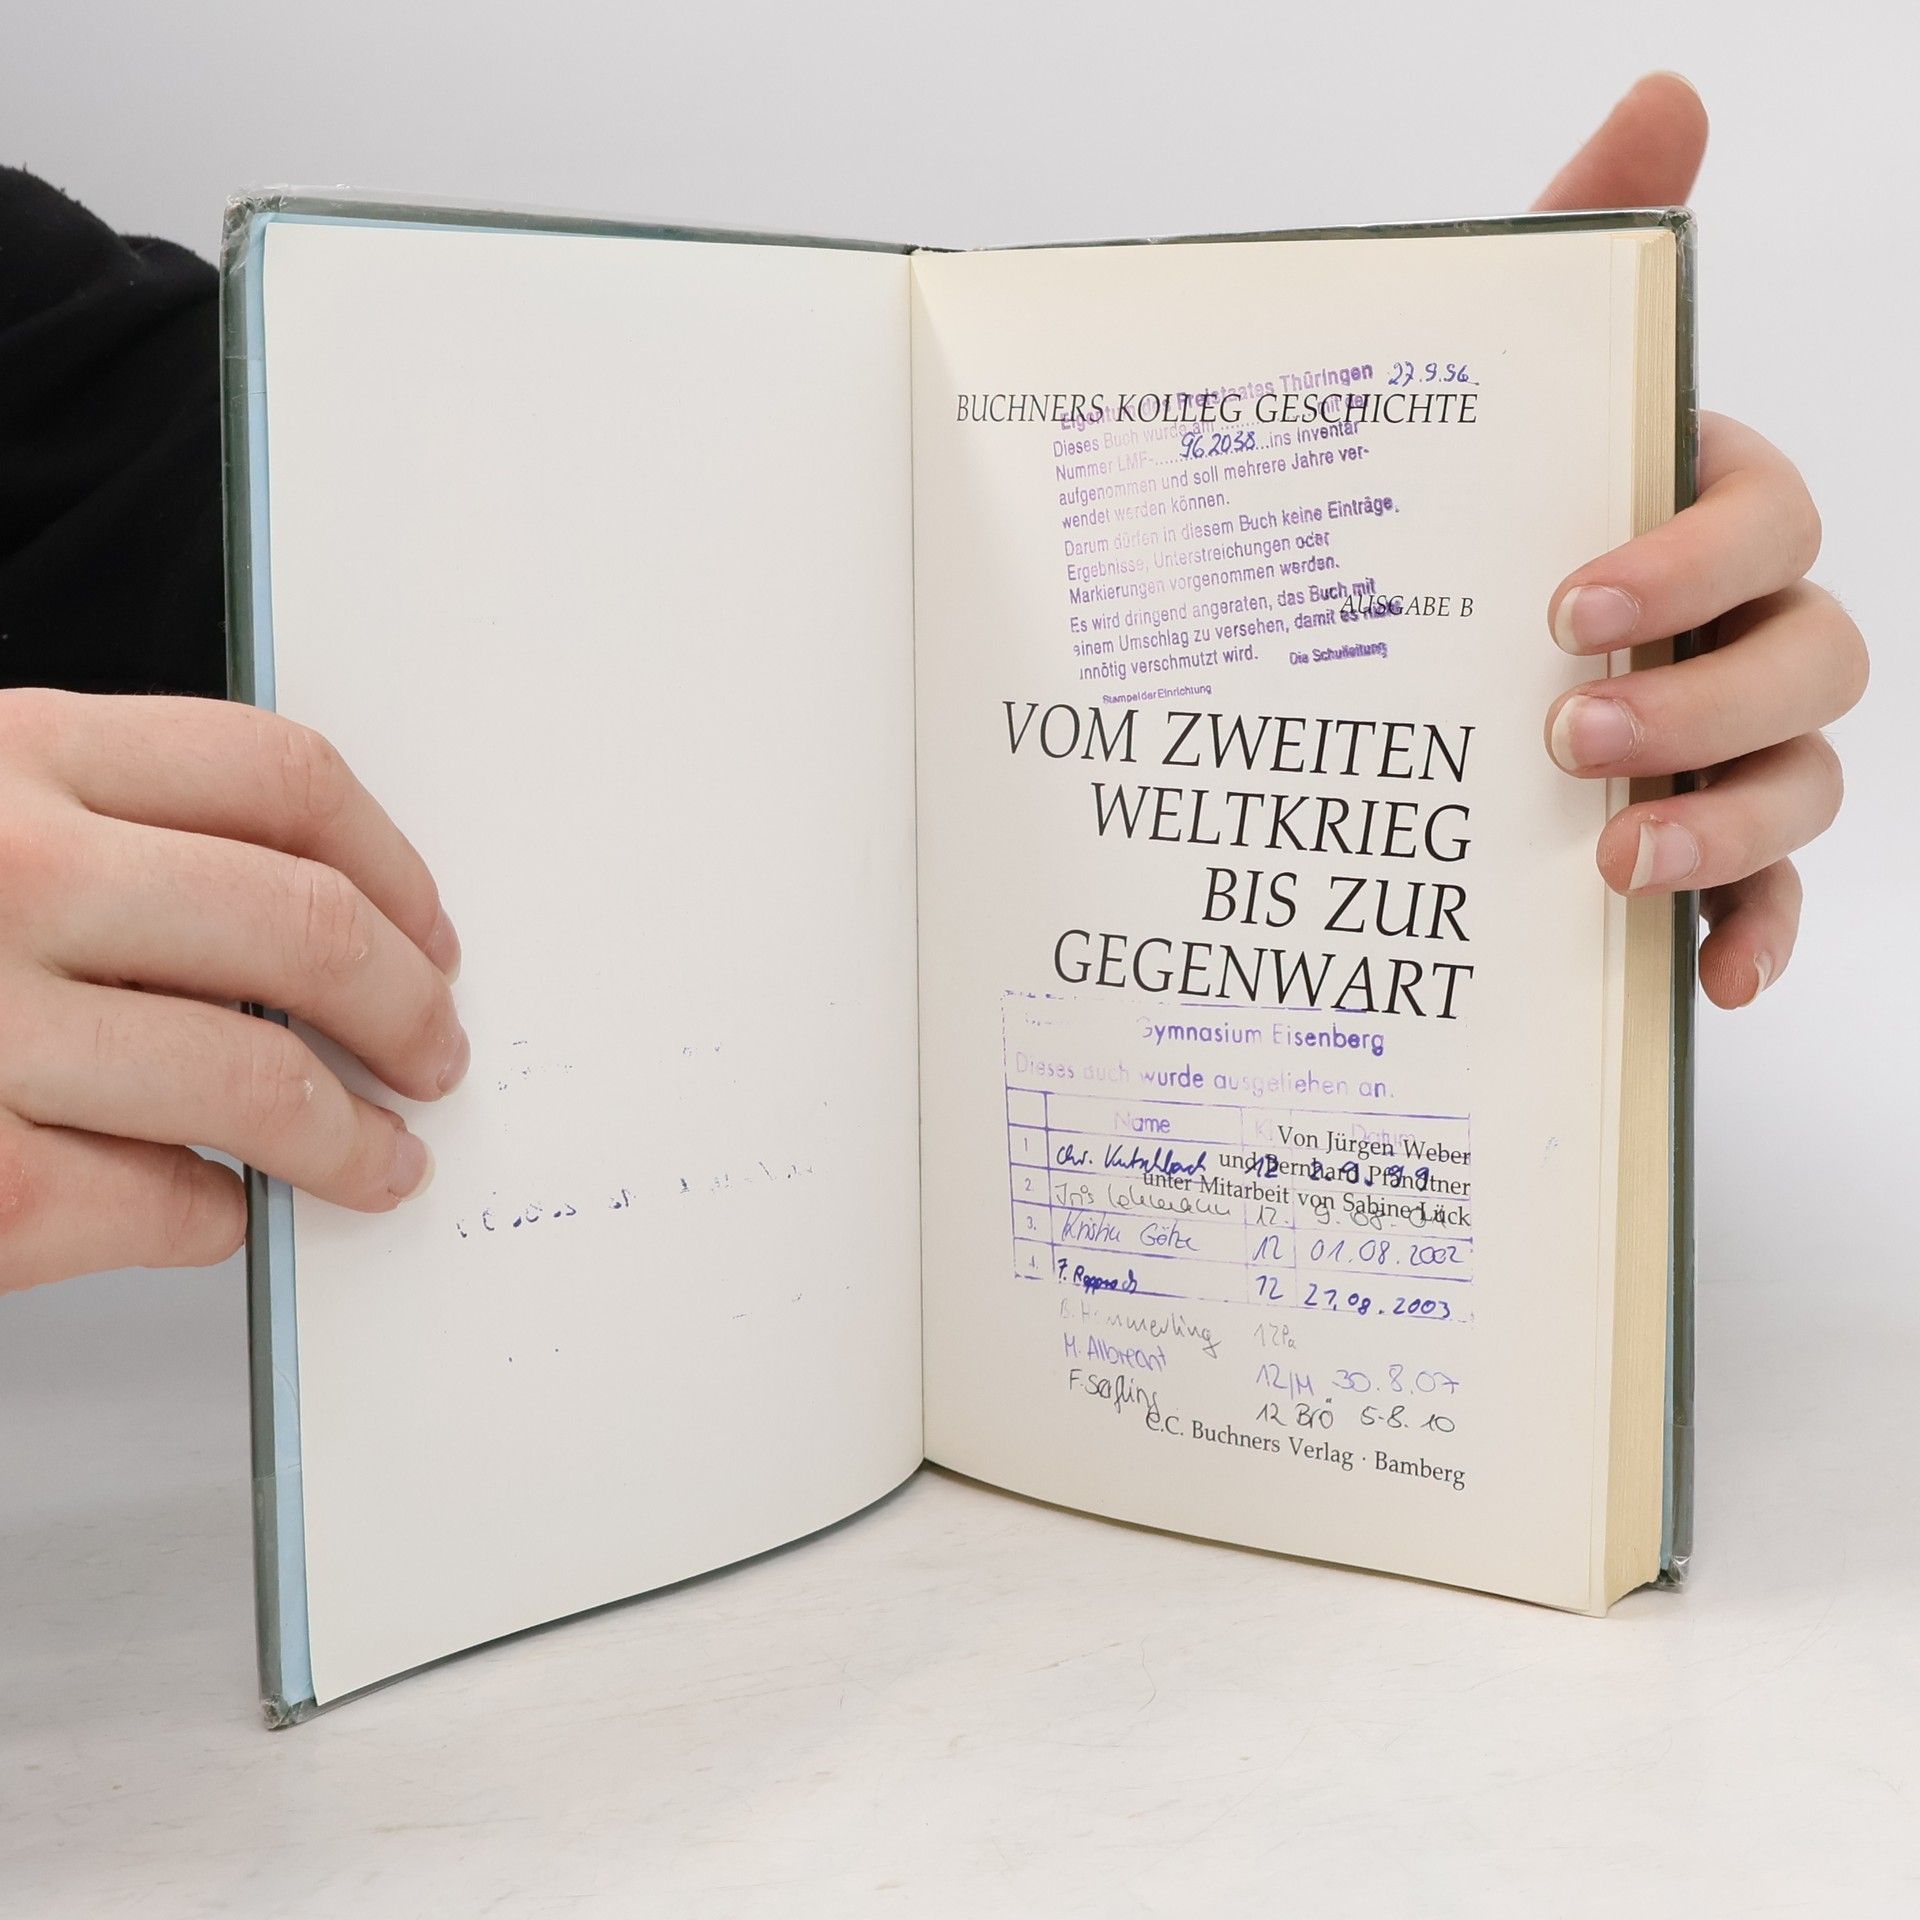 Eigentum des Freistaates Thüringen 27.9.96
BUCHNERS KOLLEG GESCHICHTE
Dieses Buch wurde am ............ mit der
Nummer LMF-......962038...ins Inventar
aufgenommen und soll mehrere Jahre ver-
wendet werden können.
Darum dürfen in diesem Buch keine Einträge,
Ergebnisse, Unterstreichungen oder
Markierungen vorgenommen werden.
Es wird dringend angeraten, das Buch mit
AUSGABE B
einem Umschlag zu versehen, damit es nicht
unnötig verschmutzt wird. Die Schulleitung
Stempel der Einrichtung
VOM ZWEITEN
WELTKRIEG
BIS ZUR
GEGENWART
Gymnasium Eisenberg
Dieses Buch wurde ausgeliehen an.
Name Kl. Datum
Von Jürgen Weber
und Bernhard Pfändtner
unter Mitarbeit von Sabine Lück
1 Chr. 12 2.9.99
2. Iris Lehmann 12. 9.08.01
3. Kristin Götze 12 01.08.2002
4. 12 21.08.2003
B. Hämmerling 12Pa
M. Albrecht 12/M 30.8.07
F. 12 Brö 5.8.10
C.C. Buchners Verlag · Bamberg